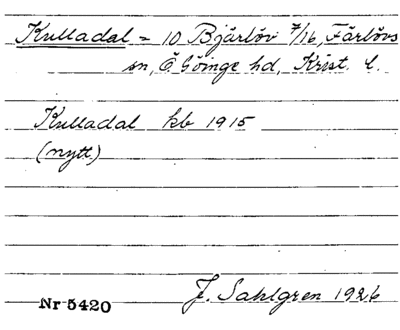 Kulladal = 10 Bjärlöv 7/16, Färlövs
sn, Ö Göinge hd, Krist. l.
Kulladal kb 1915
(nytt)
J. Sahlgren 1926
Nr 5420